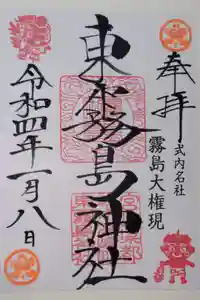 奉拝
式内名社
霧島大権現
東霧島神社
令和四年一月八日